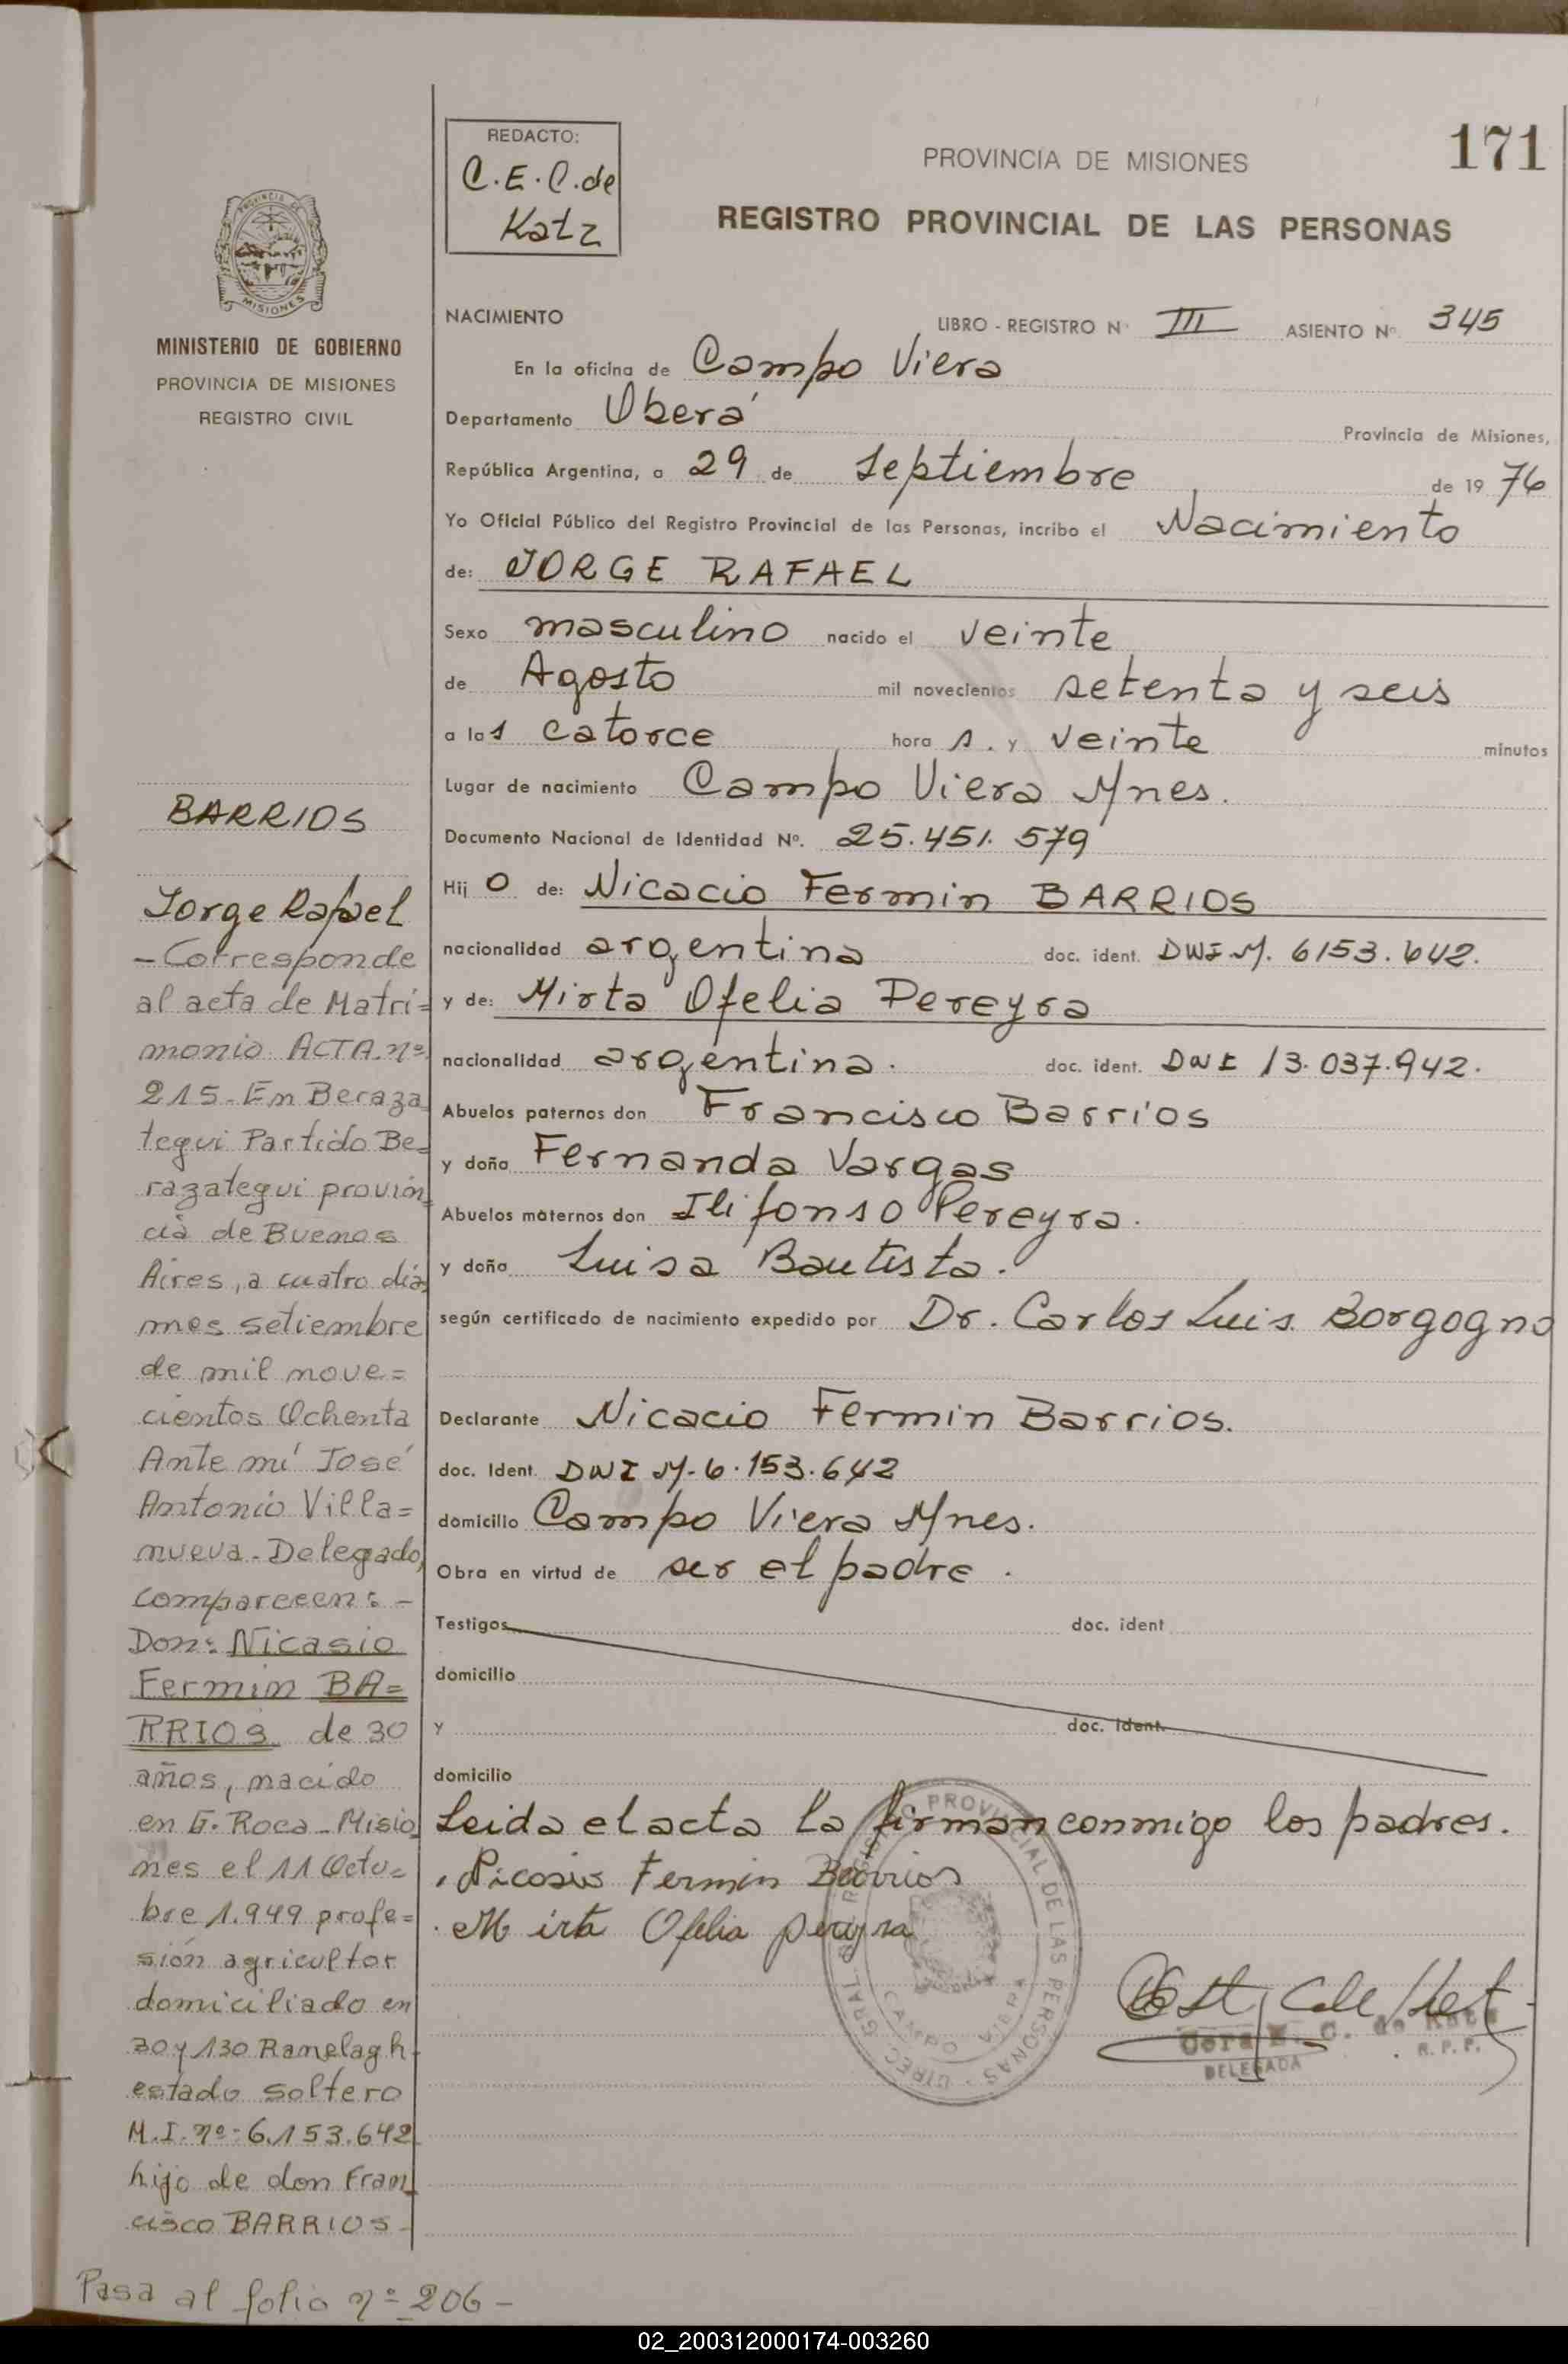 171
REDACTO:
C.E.C.de
Katz
PROVINCIA DE MISIONES
REGISTRO PROVINCIAL DE LAS PERSONAS
MISIONES
MINISTERIO DE GOBIERNO
PROVINCIA DE MISIONES
REGISTRO CIVIL
NACIMIENTO LIBRO - REGISTRO Nº III ASIENTO Nº 345
En la oficina de Campo Viera
Departamento Oberá Provincia de Misiones,
República Argentina, a 29 de Septiembre de 19 76
Yo Oficial Público del Registro Provincial de las Personas, incribo el Nacimiento
de: JORGE RAFAEL
Sexo masculino nacido el veinte
de Agosto mil novecientos setenta y seis
a las catorce hora s. y veinte minutos
Lugar de nacimiento Campo Viera Mnes.
Documento Nacional de Identidad Nº. 25.451.579
Hij o de: Nicacio Fermin BARRIOS
nacionalidad argentina doc. ident. DNI M. 6153.642.
y de: Mirta Ofelia Pereyra
nacionalidad argentina. doc. ident. DNI 13.037.942.
Abuelos paternos don Francisco Barrios
y doña Fernanda Vargas
Abuelos maternos don Ilifonso Pereyra.
y doña Luisa Bautista.
según certificado de nacimiento expedido por Dr. Carlos Luis Borgogno
Declarante Nicacio Fermin Barrios.
doc. Ident. DNI M-6.153.642
domicilio Campo Viera Mnes.
Obra en virtud de ser el padre.
Testigos doc. ident
domicilio
y doc. ident.
domicilio
Leida el acta la firman conmigo los padres.
Nicasio Fermin Barrios
Mirta Ofelia pereyra
Cora E. C. de Katz
DELEGADA R. P. P.
BARRIOS
Jorge Rafael
- Corresponde
al acta de Matri=
monio ACTA nº
215- En Beraza
tegui Partido Be=
razategui provin=
cia de Buenos
Aires, a cuatro día
mes setiembre
de mil nove=
cientos Ochenta
Ante mí José
Antonio Villa=
nueva - Delegado,
compareceen: -
Don: Nicasio
Fermin BA=
RRIOS de 30
años, nacido
en G. Roca - Misio
nes el 11 Octu=
bre 1.949 profe=
sión agricultor
domiciliado en
30 y 130 Ranelagh
estado soltero
M.I. nº- 6.153.642
hijo de don Fran
cisco BARRIOS -
Pasa al folio nº 206 -
02_200312000174-003260